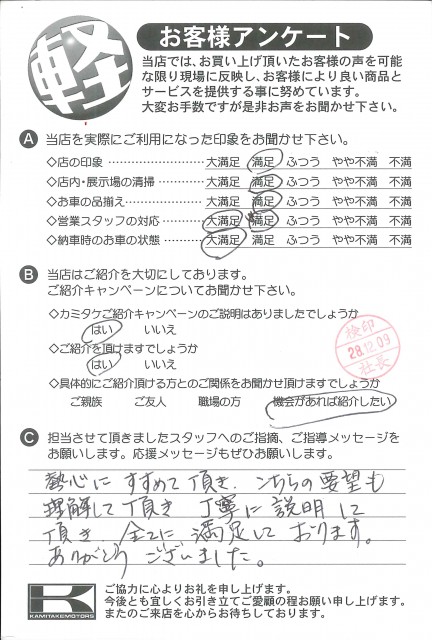 軽
お客様アンケート
当店では、お買い上げ頂いたお客様の声を可能
な限り現場に反映し、お客様により良い商品と
サービスを提供する事に努めています。
大変お手数ですが是非お声をお聞かせ下さい。
A 当店を実際にご利用になった印象をお聞かせ下さい。
◇店の印象 ………………… 大満足 満足 ふつう やや不満 不満
◇店内・展示場の清掃 ………… 大満足 満足 ふつう やや不満 不満
◇お車の品揃え ……………… 大満足 満足 ふつう やや不満 不満
◇営業スタッフの対応 ………… 大満足 満足 ふつう やや不満 不満
◇納車時のお車の状態 ………… 大満足 満足 ふつう やや不満 不満
B 当店はご紹介を大切にしております。
ご紹介キャンペーンについてお聞かせ下さい。
◇カミタケご紹介キャンペーンのご説明はありましたでしょうか
はい いいえ
◇ご紹介を頂けますでしょうか
はい いいえ
検印
28.12.09
社長
◇具体的にご紹介頂ける方とのご関係をお聞かせ頂けますでしょうか
ご親族 ご友人 職場の方 機会があれば紹介したい
C 担当させて頂きましたスタッフへのご指摘、ご指導メッセージを
お願いします。応援メッセージもぜひお願いします。
熱心に すすめて 頂き、こちらの要望も
理解して 頂き 丁寧に 説明して
頂き、全てに 満足して おります。
ありがとう ございました。
K
KAMITAKEMOTORS
ご協力に心よりお礼を申し上げます。
今後とも宜しくお引き立てご愛顧の程お願い申し上げます。
またのご来店を心からお待ちしております。